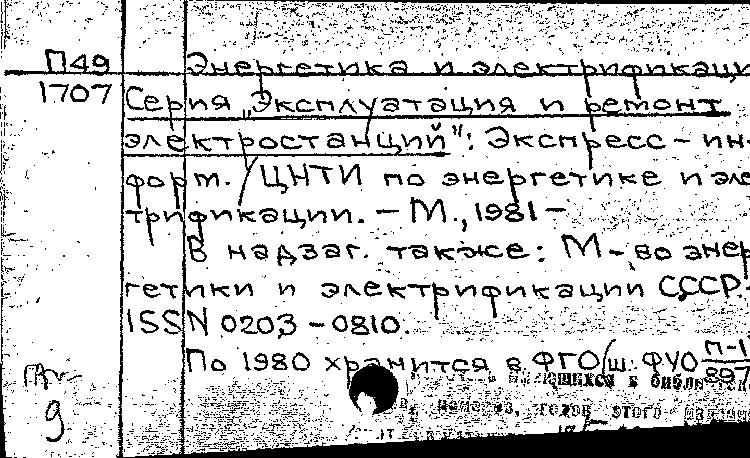 П49 Энергетика и электрификаци
1707 Серия „Эксплуатация и ремонт
электростанций": Экспресс-ин-
форм. / ЦНТИ по энергетике и эле
трификации. - М., 1981 -
В надзаг. также: М-во энер
гетики и электрификации СССР.-
ISSN 0203-0810.
По 1980 хранится в ФГО ш. ФУО П-1
897
9 в библи
годов этого